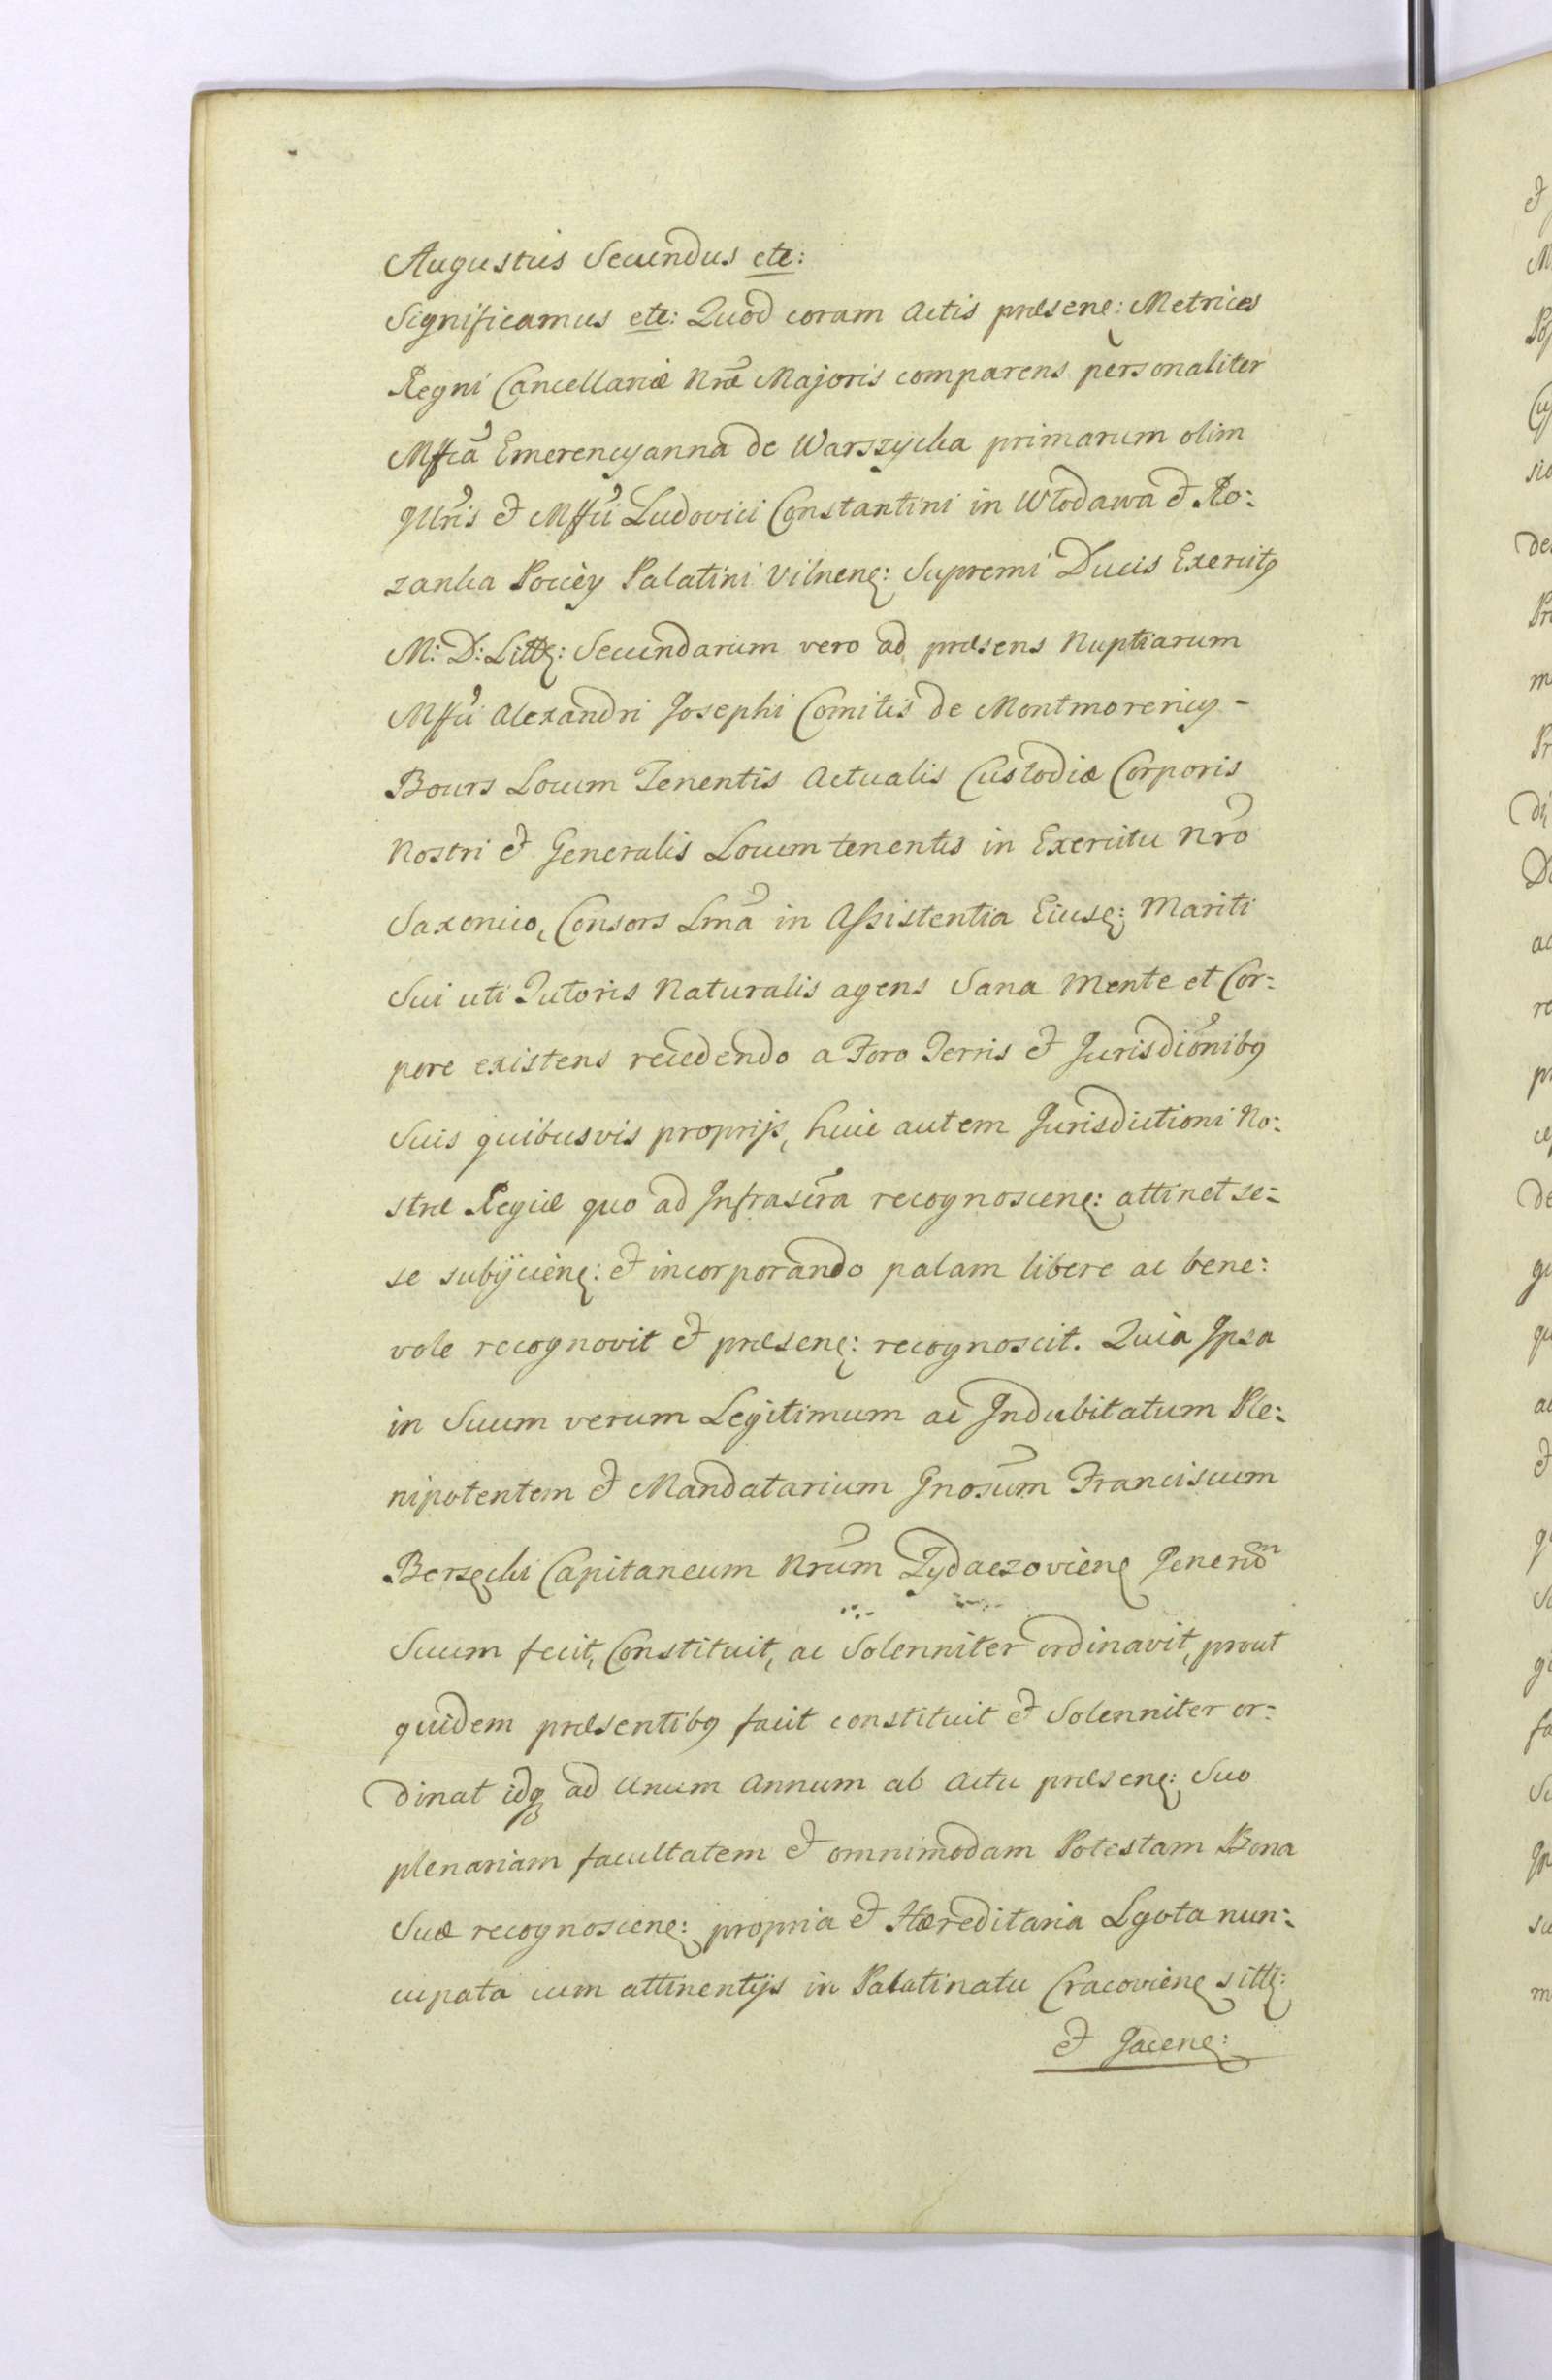 Augustus Secundus etc:
Significamus etc: Quod coram Actis præsenę: Metrices
Regni Cancellariæ Nræ Majoris comparens personaliter
Mffca Emerencyanna de Warszycka primarum olim
Illris et Mffci Ludovici Constantini in Włodawa et Ro:
zanka Pociey Palatini Vilnenę: Supremi Ducis Exercitꝰ
M: D: Littę: Secundarum vero ad præsens Nuptiarum
Mffci Alexandri Josephi Comitis de Montmorency -
Bours Locum Tenentis Actualis Custodiæ Corporis
Nostri et Generalis Locum tenentis in Exercitu Nro
Saxonico, Consors Lma in Assistentia Eiusę: Mariti
Sui uti Tutoris Naturalis agens Sana Mente et Cor:
pore existens recedendo a Foro Terris et Jurisdionibꝰ
Suis quibusvis proprijs, huic autem Jurisdictioni No:
stræ Regiæ quo ad Infrascra recognoscenę: attinet se:
se subijcienę: et incorporando palam libere ac bene:
vole recognovit et præsenę: recognoscit. Quia Ipsa
in Suum verum Legitimum ac Indubitatum Ple:
nipotentem et Mandatarium Gnosum Franciscum
Berzęcki Capitaneum Nrum Zydaczovienę Generum
Suum fecit, Constituit, ac Solenniter ordinavit, prout
quidem præsentibꝰ facit constituit et Solenniter or:
dinat idq ad Unum Annum ab Actu præsenę: Suo
plenariam facultatem et omnimodam Potestam Bona
Suæ recognoscenę: propria et Hæreditaria Lgota nun:
cupata cum attinentijs in Palatinatu Cracovienę sittę:
et Jacenę: